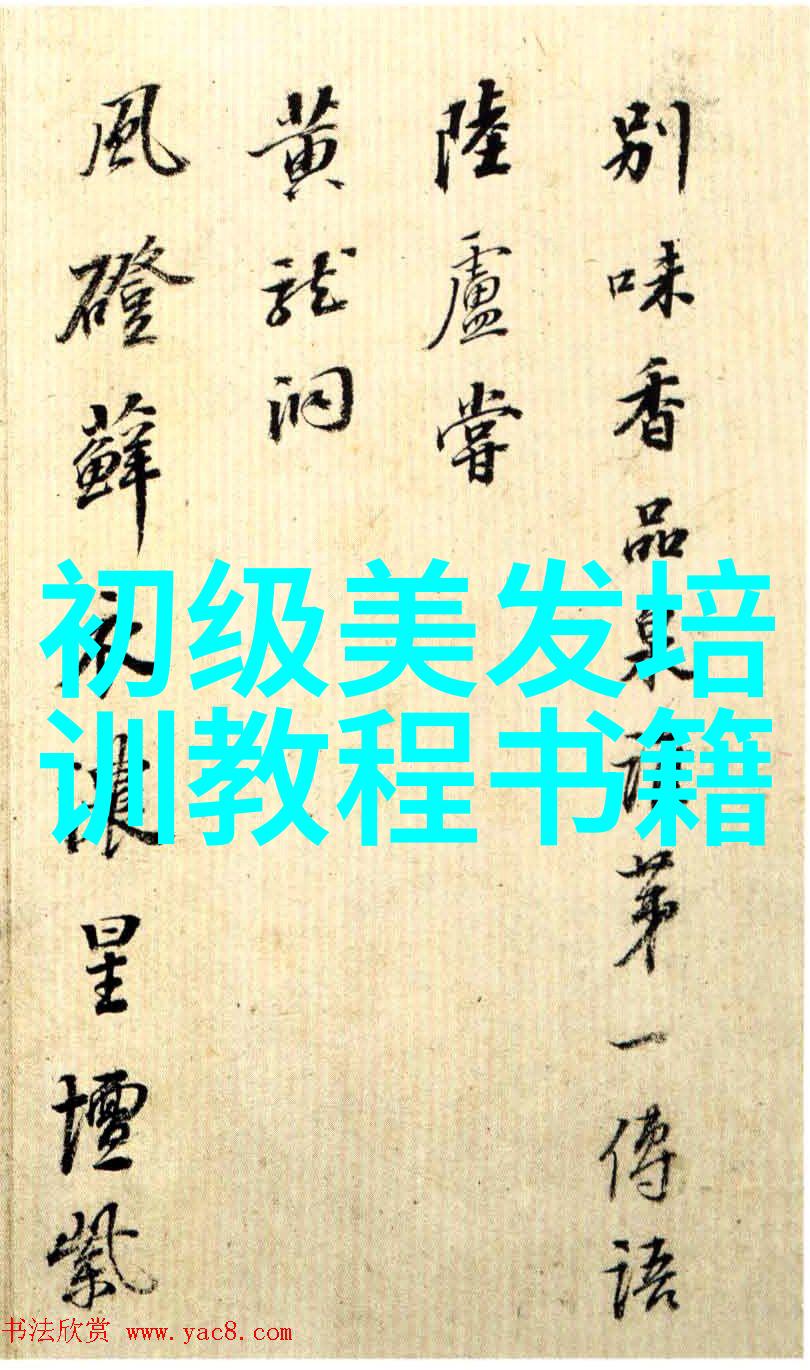 别味香品泉誰第一傳語
陸盧嘗
黄龍洞
風磴蘚衣濃星壇紫
初级美发培
训教程书籍
书法欣赏 www.yac8.com